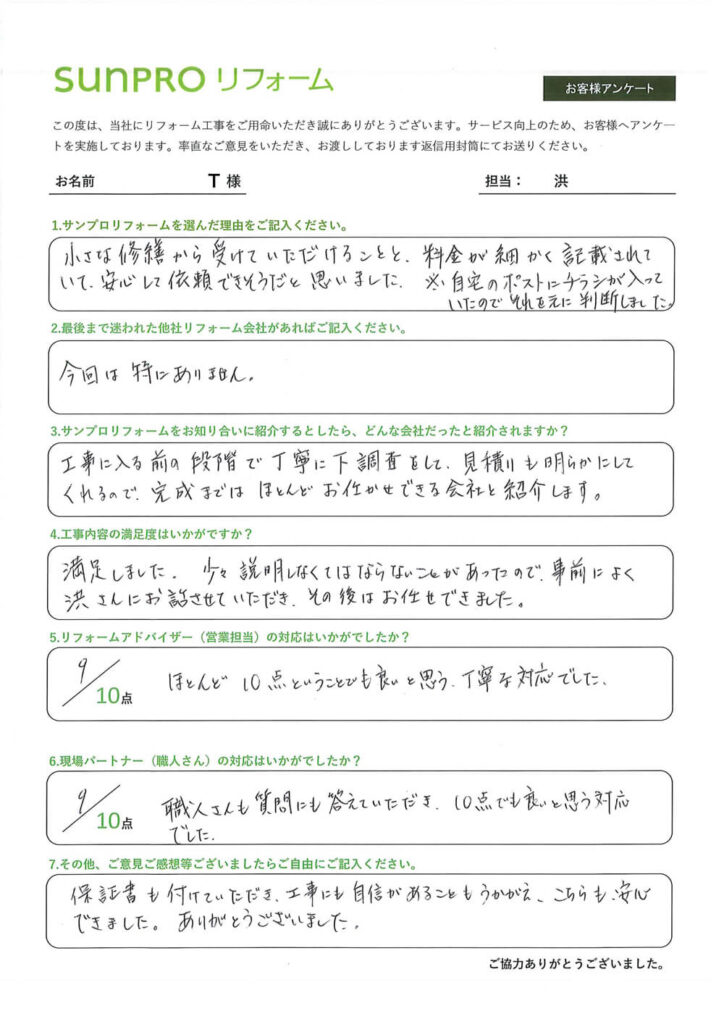 SUNPRO リフォーム
お客様アンケート
この度は、当社にリフォーム工事をご用命いただき誠にありがとうございます。サービス向上のため、お客様へアンケー
トを実施しております。率直なご意見をいただき、お渡ししております返信用封筒にてお送りください。
お名前 T 様 担当： 洪
1.サンプロリフォームを選んだ理由をご記入ください。
小さな修繕から受けていただけることと、料金が細かく記載されて
いて、安心して依頼できそうだと思いました. ※自宅のポストにチラシが入って
いたのでそれを元に判断しました。
2.最後まで迷われた他社リフォーム会社があればご記入ください。
今回は特にありません。
3.サンプロリフォームをお知り合いに紹介するとしたら、どんな会社だったと紹介されますか？
工事に入る前の段階で丁寧に下調査をして、見積りも明らかにして
くれるので、完成までは ほとんどお任かせできる会社と紹介します。
4.工事内容の満足度はいかがですか？
満足しました. 少々説明しなくてはならないことがあったので、事前によく
洪さんにお話させていただき、その後はお任せできました。
5.リフォームアドバイザー（営業担当）の対応はいかがでしたか？
9/10点 ほとんど 10点ということでも良いと思う、丁寧な対応でした.
6.現場パートナー（職人さん）の対応はいかがでしたか？
9/10点 職人さんも質問にも答えていただき、10点でも良いと思う対応
でした.
7.その他、ご意見ご感想等ございましたらご自由にご記入ください。
保証書も付けていただき、工事にも自信があることもうかがえ、こちらも、安心
できました。ありがとうございました.
ご協力ありがとうございました。